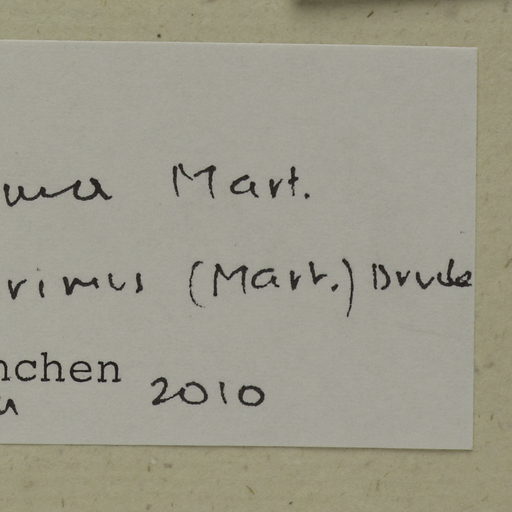 uma Mart.
rimus (Mart.) Drude
nchen
2010